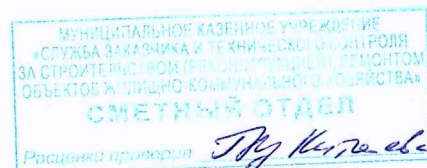 МУНИЦИПАЛЬНОЕ КАЗЕННОЕ УЧРЕЖДЕНИЕ
«СЛУЖБА ЗАКАЗЧИКА И ТЕХНИЧЕСКОГО КОНТРОЛЯ
ЗА СТРОИТЕЛЬСТВОМ (РЕКОНСТРУКЦИЕЙ), РЕМОНТОМ
ОБЪЕКТОВ ЖИЛИЩНО-КОММУНАЛЬНОГО ХОЗЯЙСТВА»
СМЕТНЫЙ ОТДЕЛ
Расценки проверил